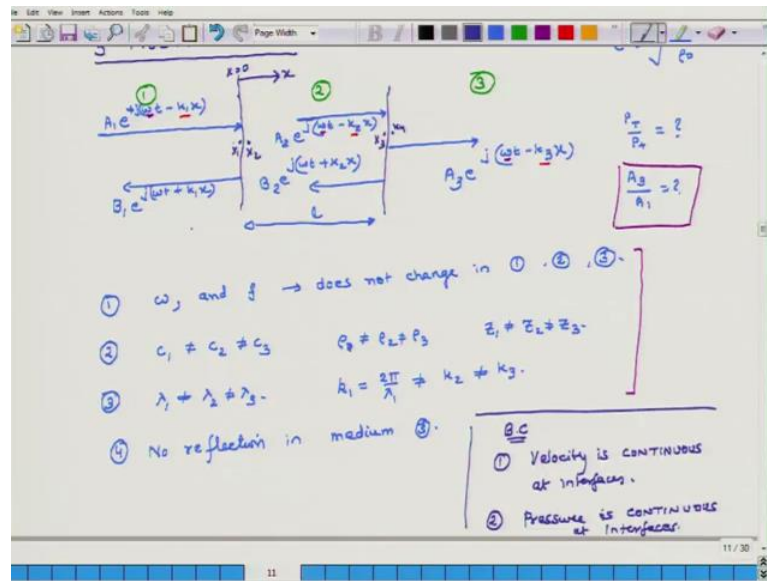 Edit View Insert Actions Tools Help
Page Width
x=0 → x
① ② ③
A₁e^+j(ωt - k₁x)
A₂e^j(ωt - k₂x)
A₃e^j(ωt - k₃x)
x₁ x₂ x₃ x₄
B₁e^j(ωt + k₁x)
B₂e^j(ωt + k₂x)
l
P_T/P_+ = ?
A₃/A₁ = ?
① ω, and f → does not change in ①, ②, ③.
② c₁ ≠ c₂ ≠ c₃ ρ₁ ≠ ρ₂ ≠ ρ₃ Z₁ ≠ Z₂ ≠ Z₃.
③ λ₁ ≠ λ₂ ≠ λ₃. k₁ = 2π/λ₁ ≠ k₂ ≠ k₃.
④ No reflection in medium ③.
B.C
① Velocity is CONTINUOUS
at interfaces.
② Pressure is CONTINUOUS
at interfaces.
11 / 30
11